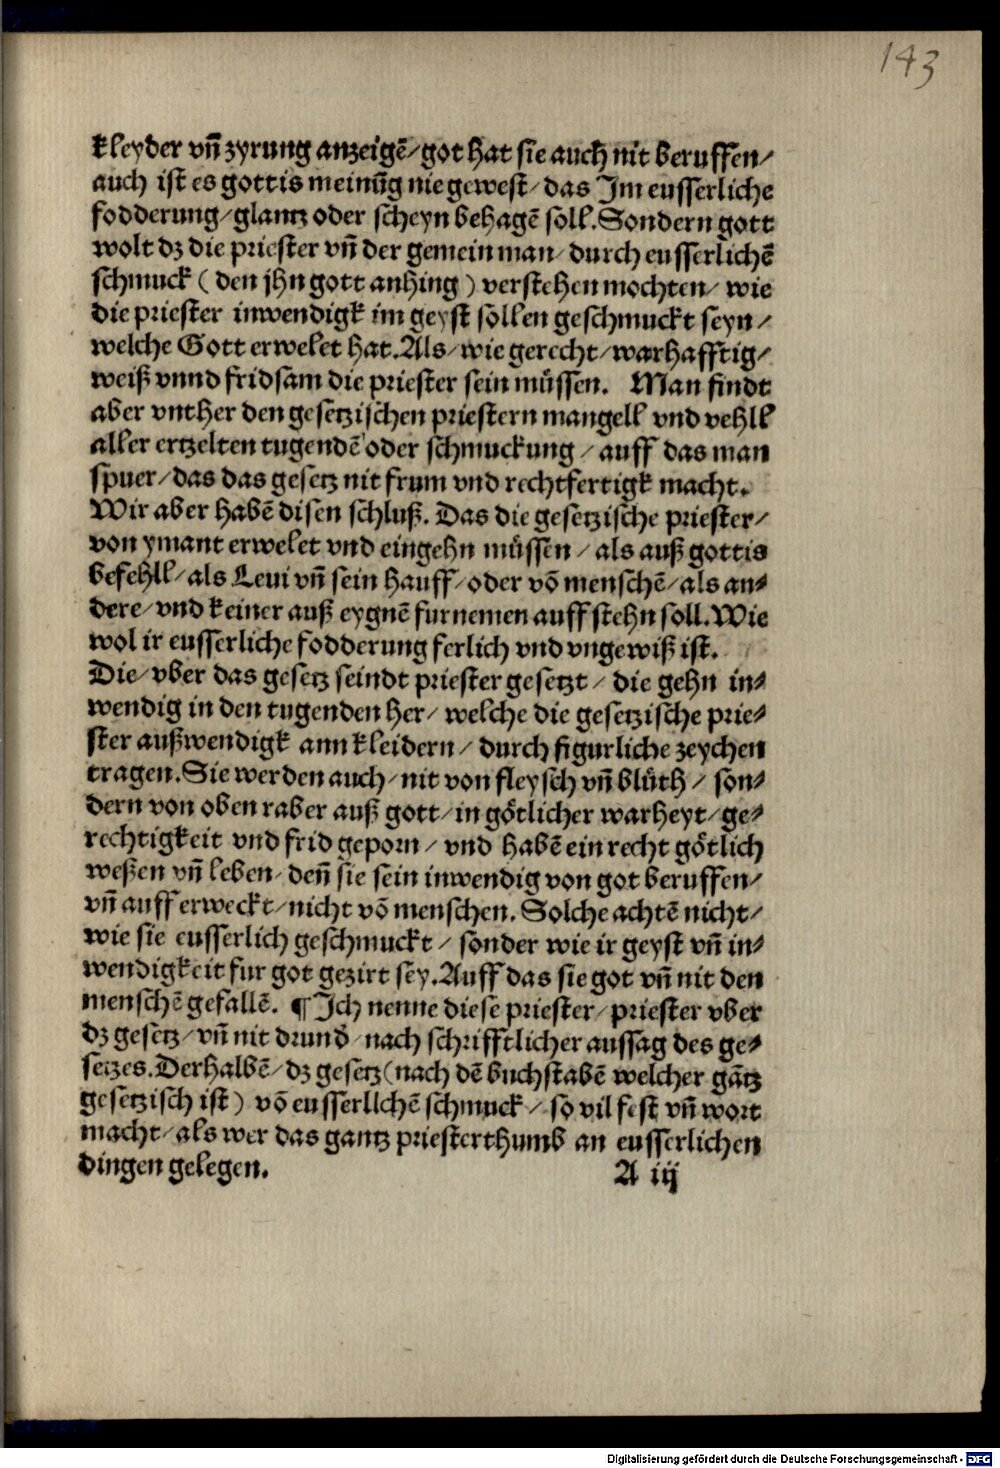 143
kleyder vn̄ zyrung anzeigē/ got hat sie auch nit beruffen/
auch ist es gottis meinūg nie gewest/ das Im eusserliche
fodderung/ glantz oder scheyn behagē soll. Sondern gott
wolt dz die priester vn̄ der gemein man/ durch eusserlichē
schmuck ( den jhn gott anhing ) verstehen mochten/ wie
die priester inwendigk im geyst sollen geschmuckt seyn/
welche Gott erwelet hat. Als/ wie gerecht/ warhafftig/
weiß vnnd fridsam die priester sein müssen. Man findt
aber vnther den gesetzischen priestern mangell vnd vehll
aller ertzelten tugendē oder schmuckung/ auff das man
spuer/ das das gesetz nit frum vnd rechtfertigk macht.
Wir aber habē disen schluß. Das die gesetzische priester/
von ymant erwelet vnd eingehn müssen/ als auß gottis
befehll/ als Leui vn̄ sein hauff/ oder vō menschē/ als an⸗
dere/ vnd keiner auß eygnē furnemen auff stehn soll. Wie
wol ir eusserliche fodderung ferlich vnd vngewiß ist.
Die/ vber das gesetz seindt priester gesetzt/ die gehn in⸗
wendig in den tugenden her/ welche die gesetzische prie⸗
ster außwendigk ann kleidern/ durch figurliche zeychen
tragen. Sie werden auch/ nit von fleysch vn̄ blüth/ son⸗
dern von oben raber auß gott/ in götlicher warheyt/ ge⸗
rechtigkeit vnd frid geporn/ vnd habē ein recht götlich
weßen vn̄ leben/ den̄ sie sein inwendig von got beruffen/
vn̄ auff erweckt/ nicht vō menschen. Solche achtē nicht/
wie sie eusserlich geschmuckt/ sonder wie ir geyst vn̄ in⸗
wendigkeit fur got gezirt sey. Auff das sie got vn̄ nit den
menschē gefallē. ¶ Ich nenne diese priester/ priester vber
dz gesetz/ vn̄ nit drund̕/ nach schrifftlicher aussag des ge⸗
setzes. Derhalbē/ dz gesetz (nach dē buchstabē welcher gātz
gesetzisch ist) vō eusserllchē schmuck/ so vil fest vn̄ wort
macht/ als wer das gantz priesterthumb an eusserlichen
dingen gelegen.
A iij
Digitalisierung gefördert durch die Deutsche Forschungsgemeinschaft - DFG